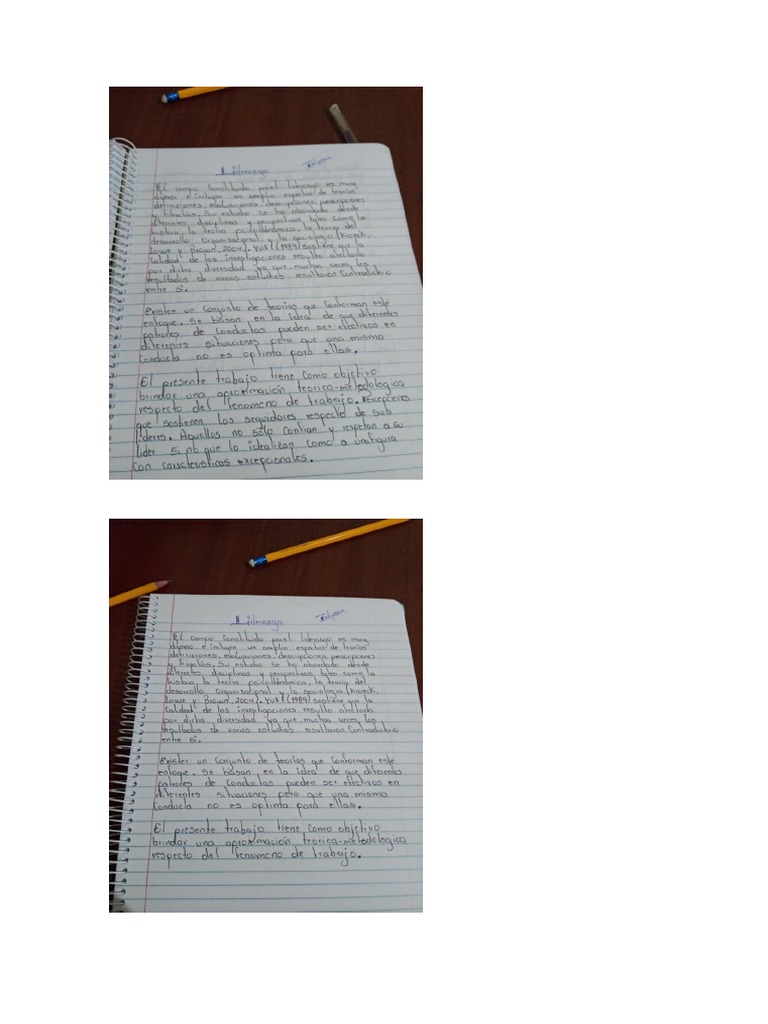 Liderazgo
El campo constituido por el liderazgo es muy
e incluyen un amplio espectro de teorías
definiciones, evaluaciones, descripciones, prescripciones
y filosofías. Su estudio se ha abordado desde
diferentes disciplinas y perspectivas, tales como la
historia, la teoría psicodinámica, la teoría del
desarrollo organizacional y la sociología (Kroeck,
Lowe y Brown, 2004). Yukl (1989) sostiene que la
calidad de las investigaciones resulto afectada
por dicha diversidad ya que muchas veces los
resultados de varios estudios resultaron contradictorio
entre sí.
Existen un conjunto de teorías que conforman este
enfoque. Se basan en la idea de que diferentes
patrones de conductas pueden ser efectivos en
diferentes situaciones pero que una misma
conducta no es optima para ellas.
El presente trabajo tiene como objetivo
brindar una aproximación teorica-metodologica
respecto del fenomeno de trabajo. Percepciones
que sostienen los seguidores respecto de sub
lideres. Aquellos no sólo confian y respetan a su
lider si no que lo idealizan como a una figura
con caracteristicas excepcionales.
Liderazgo
El campo constituido por el liderazgo es muy
e incluyen un amplio espectro de teorías
definiciones, evaluaciones, descripciones, prescripciones
y filosofías. Su estudio se ha abordado desde
diferentes disciplinas y perspectivas, tales como la
historia, la teoría psicodinámica, la teoría del
desarrollo organizacional y la sociología (Kroeck,
Lowe y Brown, 2004). Yukl (1989) sostiene que la
calidad de las investigaciones resulto afectada
por dicha diversidad ya que muchas veces los
resultados de varios estudios resultaron contradictorio
entre si.
Existen un conjunto de teorías que conforman este
enfoque. Se basan en la idea de que diferentes
patrones de conductas pueden ser efectivos en
diferentes situaciones pero que una misma
conducta no es optima para ellas.
El presente trabajo tiene como objetivo
brindar una aproximación teorica-metodologica
respecto del fenomeno de trabajo.